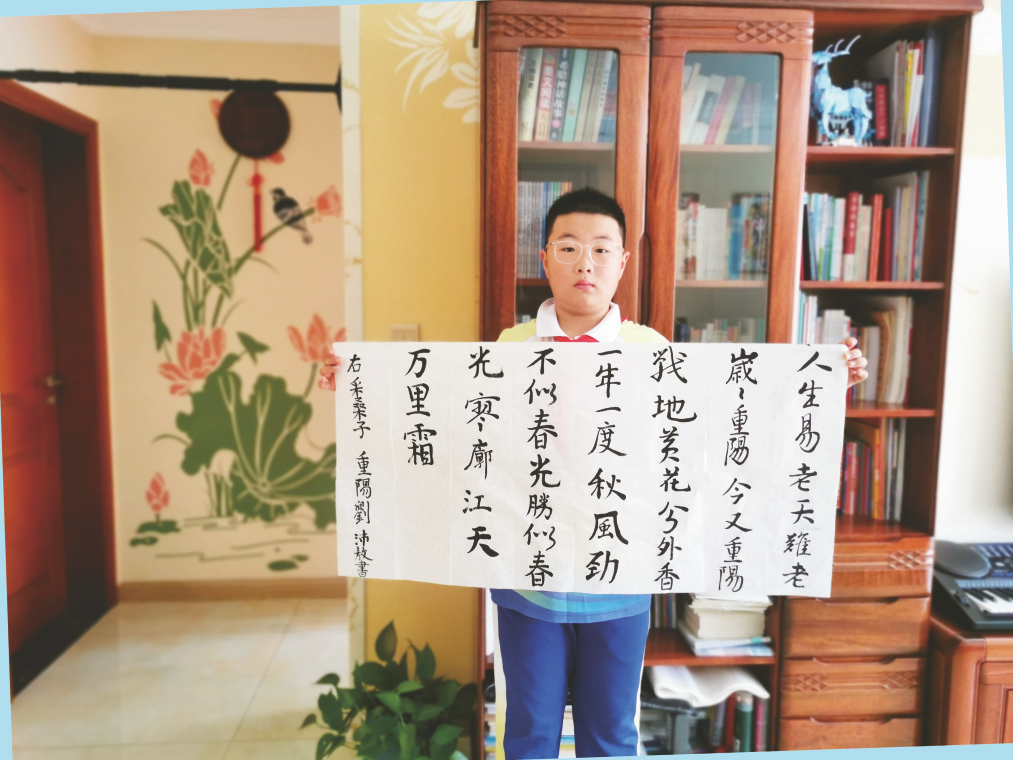 人生易老天難老
歲〻重陽今又重陽
戰地黄花分外香
一年一度秋風劲
不似春光勝似春
光寥廓江天
万里霜
右采桑子 重陽劉沛書